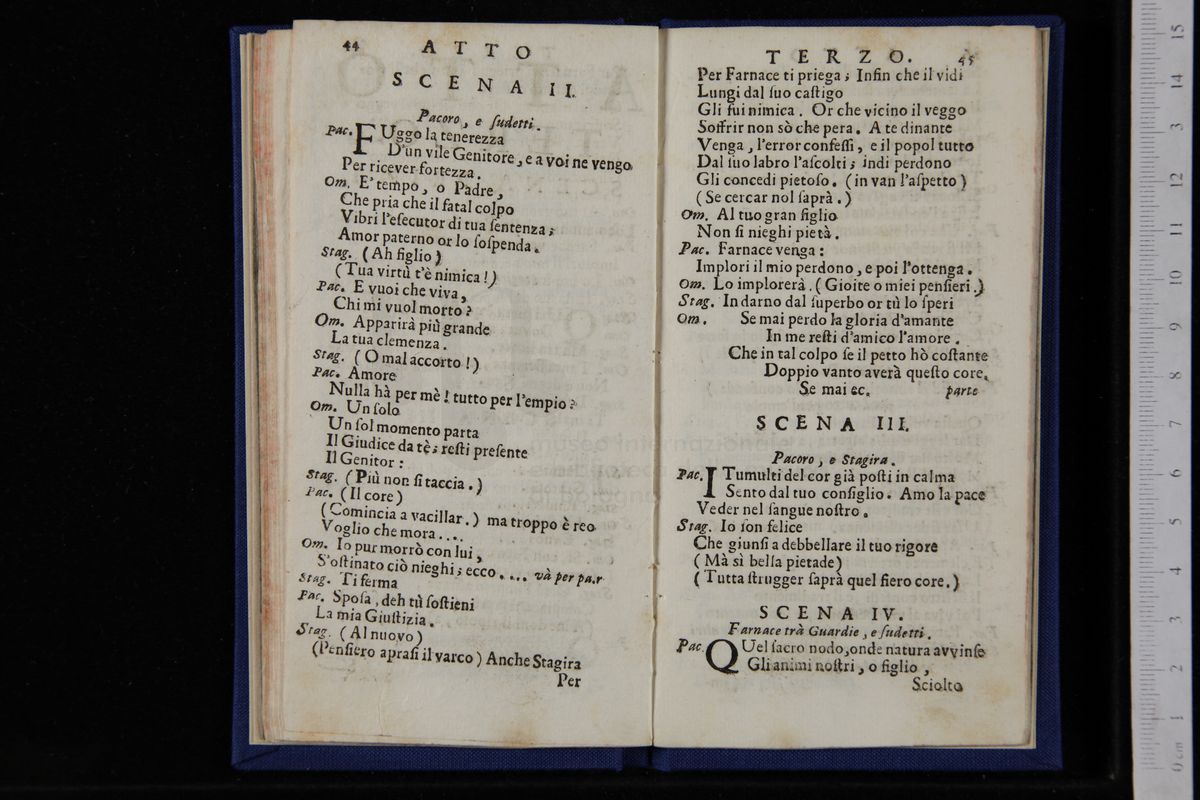 44 ATTO
SCENA II.
Pacoro, e ſudetti.
Pac. FUggo la tenerezza
D'un vile Genitore, e a voi ne vengo
Per ricever fortezza.
Om. E' tempo, o Padre,
Che pria che il fatal colpo
Vibri l'eſecutor di tua ſentenza;
Amor paterno or lo ſoſpenda.
Stag. (Ah figlio)
(Tua virtù t'è nimica!)
Pac. E vuoi che viva,
Chi mi vuol morto?
Om. Apparirà più grande
La tua clemenza.
Stag. (O mal accorto!)
Pac. Amore
Nulla hà per mè! tutto per l'empio?
Om. Un ſolo
Un ſol momento parta
Il Giudice da tè; reſti preſente
Il Genitor:
Stag. (Più non ſi taccia.)
Pac. (Il core)
(Comincia a vacillar.) ma troppo è reo
Voglio che mora....
Om. Io pur morrò con lui,
S'oſtinato ciò nieghi; ecco.... và per par
Stag. Ti ferma
Pac. Spoſa, deh tù ſoſtieni
La mia Giuſtizia.
Stag. (Al nuovo)
(Penſiero apraſi il varco) Anche Stagira
Per
TERZO. 45
Per Farnace ti priega; Infin che il vidi
Lungi dal ſuo caſtigo
Gli fui nimica. Or che vicino il veggo
Soffrir non sò che pera. A te dinante
Venga, l'error confeſſi, e il popol tutto
Dal ſuo labro l'aſcolti; indi perdono
Gli concedi pietoſo. (in van l'aſpetto)
(Se cercar nol ſaprà.)
Om. Al tuo gran figlio
Non ſi nieghi pietà.
Pac. Farnace venga:
Implori il mio perdono, e poi l'ottenga.
Om. Lo implorerà. (Gioite o miei penſieri.)
Stag. In darno dal ſuperbo or tù lo ſperi
Om. Se mai perdo la gloria d'amante
In me reſti d'amico l'amore.
Che in tal colpo ſe il petto hò coſtante
Doppio vanto averà queſto core.
Se mai &c. parte
SCENA III.
Pacoro, e Stagira.
Pac. I Tumulti del cor già poſti in calma
Sento dal tuo conſiglio. Amo la pace
Veder nel ſangue noſtro.
Stag. Io ſon felice
Che giunſi a debbellare il tuo rigore
(Mà sì bella pietade)
(Tutta ſtrugger ſaprà quel fiero core.)
SCENA IV.
Farnace trà Guardie, e ſudetti.
Pac. QUel ſacro nodo, onde natura avvinſe
Gli animi noſtri, o figlio,
Sciolto
museo internazionale
di bologna
0 cm 1 2 3 4 5 6 7 8 9 10 11 12 13 14 15